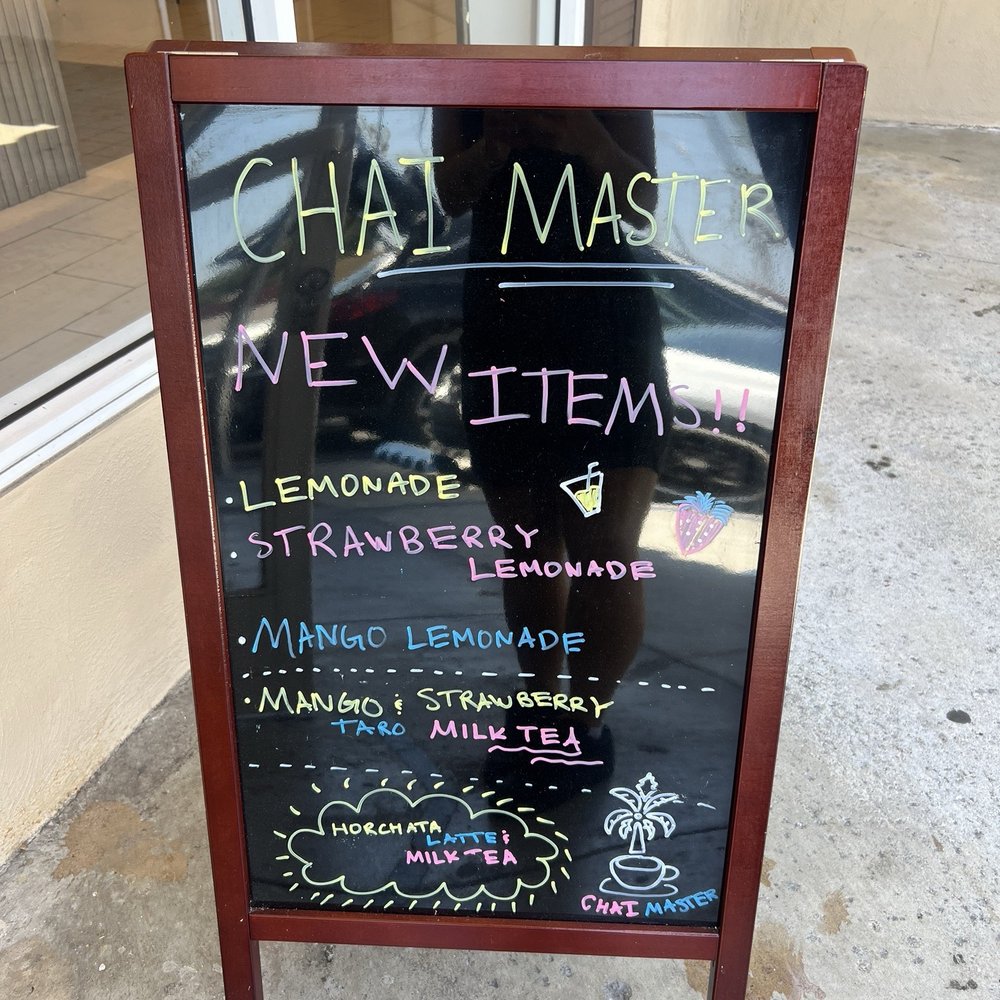 CHAI MASTER
NEW ITEMS!!
· LEMONADE
· STRAWBERRY
LEMONADE
· MANGO LEMONADE
· MANGO & STRAWBERRY
TARO MILK TEA
HORCHATA
LATTE &
MILK TEA
CHAI MASTER